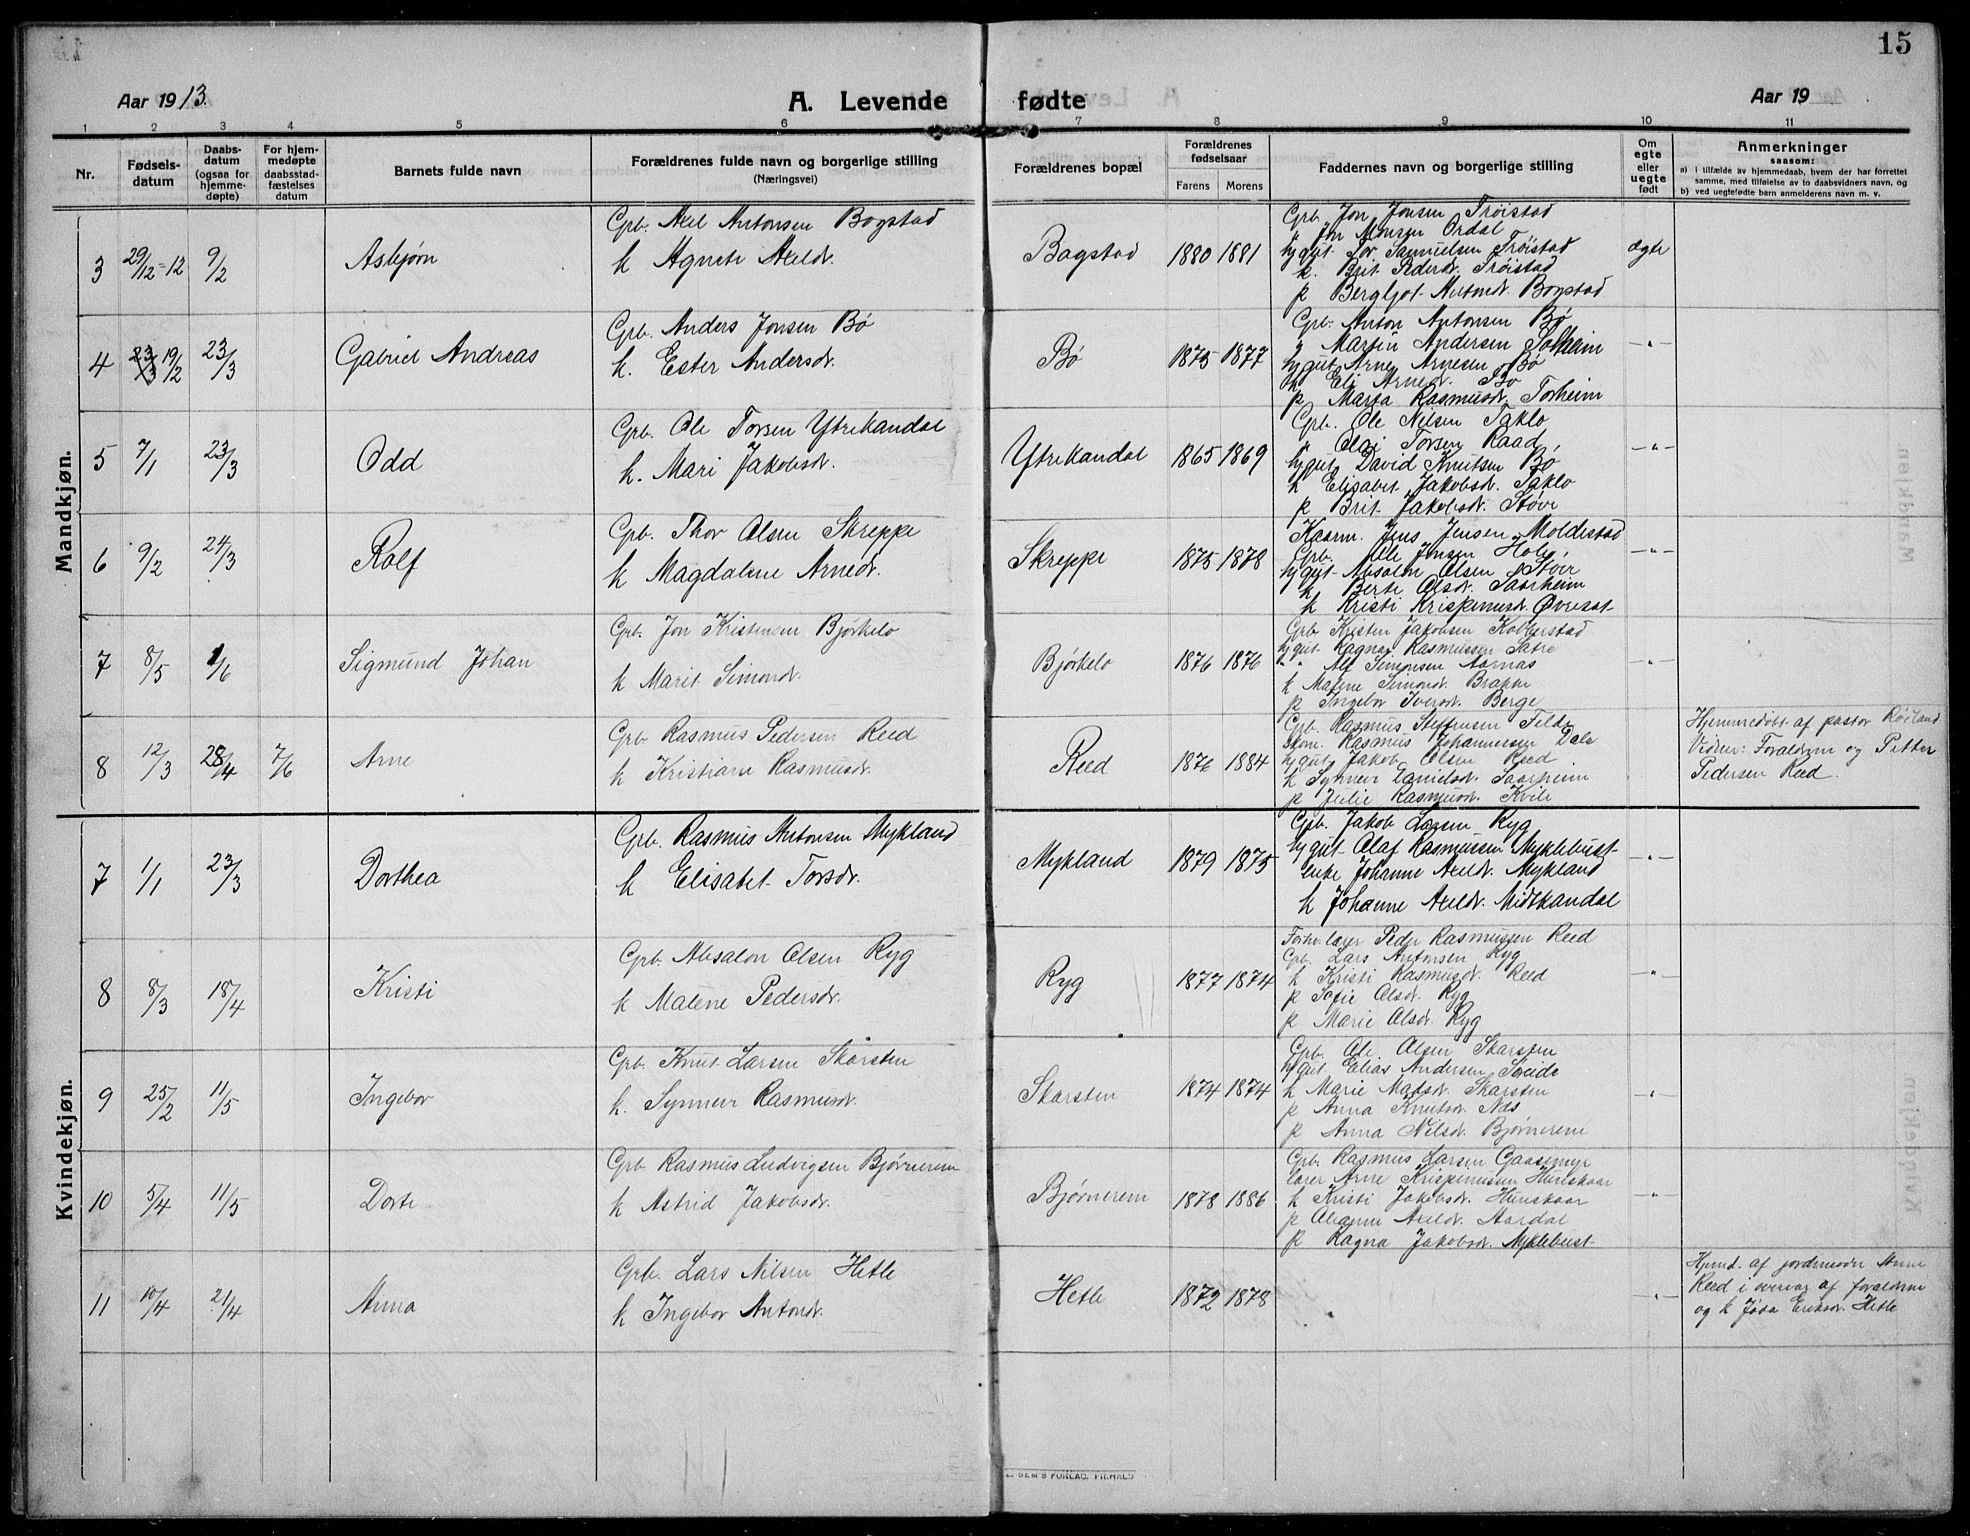 15
Aar 1913.
A. Levende fødte
Aar 19
1 2 3 4 5 6 7 8 9 10 11
Nr.
Fødsels-
datum
Daabs-
datum
(ogsaa for
hjemme-
døpte)
For hjem-
medøpte
daabsstad-
fæstelses
datum
Barnets fulde navn
Forældrenes fulde navn og borgerlige stilling
(Næringsvei)
Forældrenes bopæl
Forældrenes
fødselsaar
Farens Morens
Faddernes navn og borgerlige stilling
Om
egte
eller
uegte
født
Anmerkninger
saasom:
a) i tilfælde av hjemmedaab, hvem der har forrettet
samme, med tilføielse av to daabsvidners navn, og
b) ved uegtefødte barn anmelderens navn m. v.
Mandkjøn.
3 29/12-12 9/2 Asbjørn
Grb. Axel Antonsen Bogstad
k Agnete Axeldr.
Bogstad 1880 1881
Grb. Jon Jonsen Trøistad
" Jon Monsen Ordal
Tor Samuelsen Trøistad
k. Brit Pedersdr. Trøistad
p Bergljot Antondr. Bogstad
ægte
4 23/3 19/2 23/3 Gabriel Andreas
Grb. Anders Jonsen Bø
k. Ester Andersdr.
Bø 1875 1877
Grb. Anton Antonsen Bø
" Martin Andersen Solheim
Arne Arnesen Bø
k Eli Arnedr. Bø
p Marta Rasmusdr. Torheim
-"-
5 7/1 23/3 Odd
Grb. Ole Torsen Ytrekandal
k. Mari Jakobsdr.
Ytrekandal 1865 1869
Grb. Ole Nilsen Taklo
Torsen Raad
David Knutsen Bø
k Elisabet Jakobsdr. Taklo
p Brit Jakobsdr. Støve
-"-
6 9/2 24/3 Rolf
Grb. Thor Olsen Skreppe
k Magdalene Arnedr.
Skreppe 1875 1878
Jens Jensen Moldestad
Grb. Jonsen Hole
Absalon Olsen Støve
k Berte Olsdr. Saarheim
k Kristi Krispinusdr. Øvreset
-"-
7 8/5 1/6 Sigmund Johan
Grb. Jon Kristensen Bjørkelo
k Marit Simondr.
Bjørkelo 1876 1876
Grb Kristen Jakobsen Kobberstad
Ragnar Rasmussen Sætre
" " Alf Simonsen Aarnas
k Malene Simondr. Brække
p Ingebor Iversdr. Berge
-"-
8 12/3 28/4 7/6 Arne
Grb Rasmus Pedersen Reed
k Kristiane Rasmusdr.
Reed 1876 1884
Grb. Rasmus Steffensen Felde
Rasmus Johannessen Dale
Jakob Olsen Reed
k Synneve Danielsdr. Saarheim
p Julie Rasmusdr. Kvile
Hjemmedøbt af pastor Røiland
Vidner: Forældrene og Petter
Pedersen Reed.
Kvindekjøn.
7 1/1 23/3 Dorthea
Grb. Rasmus Antonsen Mykland
k Elisabet Torsdr.
Mykland 1879 1875
Grb. Jakob Larsen Ryg
Olaf Rasmussen Myklebust
enke Johanne Axeldr. Mykland
k Johanne Axeldr. Midtkandal
-"-
8 8/3 18/4 Kristi
Grb. Absalon Olsen Ryg
k Malene Pedersdr.
Ryg 1877 1874
Peder Rasmussen Reed
Grb. Lars Antonsen Ryg
k Kristi Rasmusdr. Reed
p Sofie Olsdr. Ryg
p Marie Olsdr. Ryg
-"-
9 25/2 11/5 Ingebor
Grb. Knut Larsen Skarsten
k. Synneve Rasmusdr.
Skarsten 1874 1874
Grb. Ole Olsen Skarsten
Elias Andersen Seide
k Marie Matsdr. Skarsten
p Anna Knutsdr. Nøs
p Anna Nilsdr. Bjørnereim
-"-
10 5/4 11/5 Dorte
Grb. Rasmus Ludvigsen Bjørnereim
k Astrid Jakobsdr.
Bjørnereim 1878 1886
Grb. Rasmus Larsen Gaasemyr
lærer Arne Krispinussen Hunskaar
k Kristi Jakobsdr. Hunskaar
p Oleanne Axeldr. Aardal
p Ragna Jakobsdr. Myklebust
-"-
11 10/4 21/4 Anna
Grb. Lars Nilsen Hetle
k Ingebor Antondr.
Hetle 1872 1878
-"-
Hjemd. af jordemoder Anne
Reed i overvær af forældrene
og k Eriksdr. Hetle
SEM'S FORLAG, FR.HALD